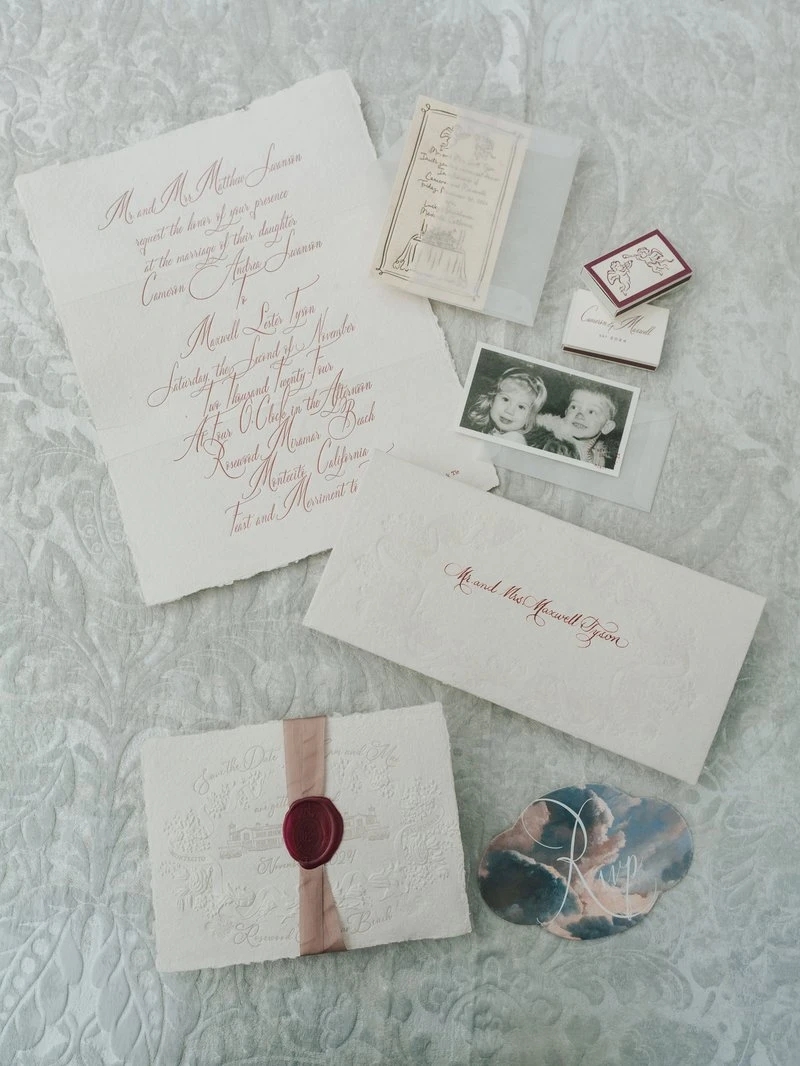 Mr. and Mrs. Matthew Swanson
request the honor of your presence
at the marriage of their daughter
Cameron Andrea Swanson
to
Maxwell Lester Tyson
Saturday, the Second of November
Two Thousand Twenty Four
At Four O'Clock in the Afternoon
Rosewood Miramar Beach
Montecito, California
Feast and Merriment to
Cameron & Maxwell
Mr. and Mrs. Maxwell Tyson
Save the Date
November 2024
Rosewood Beach
Rsvp